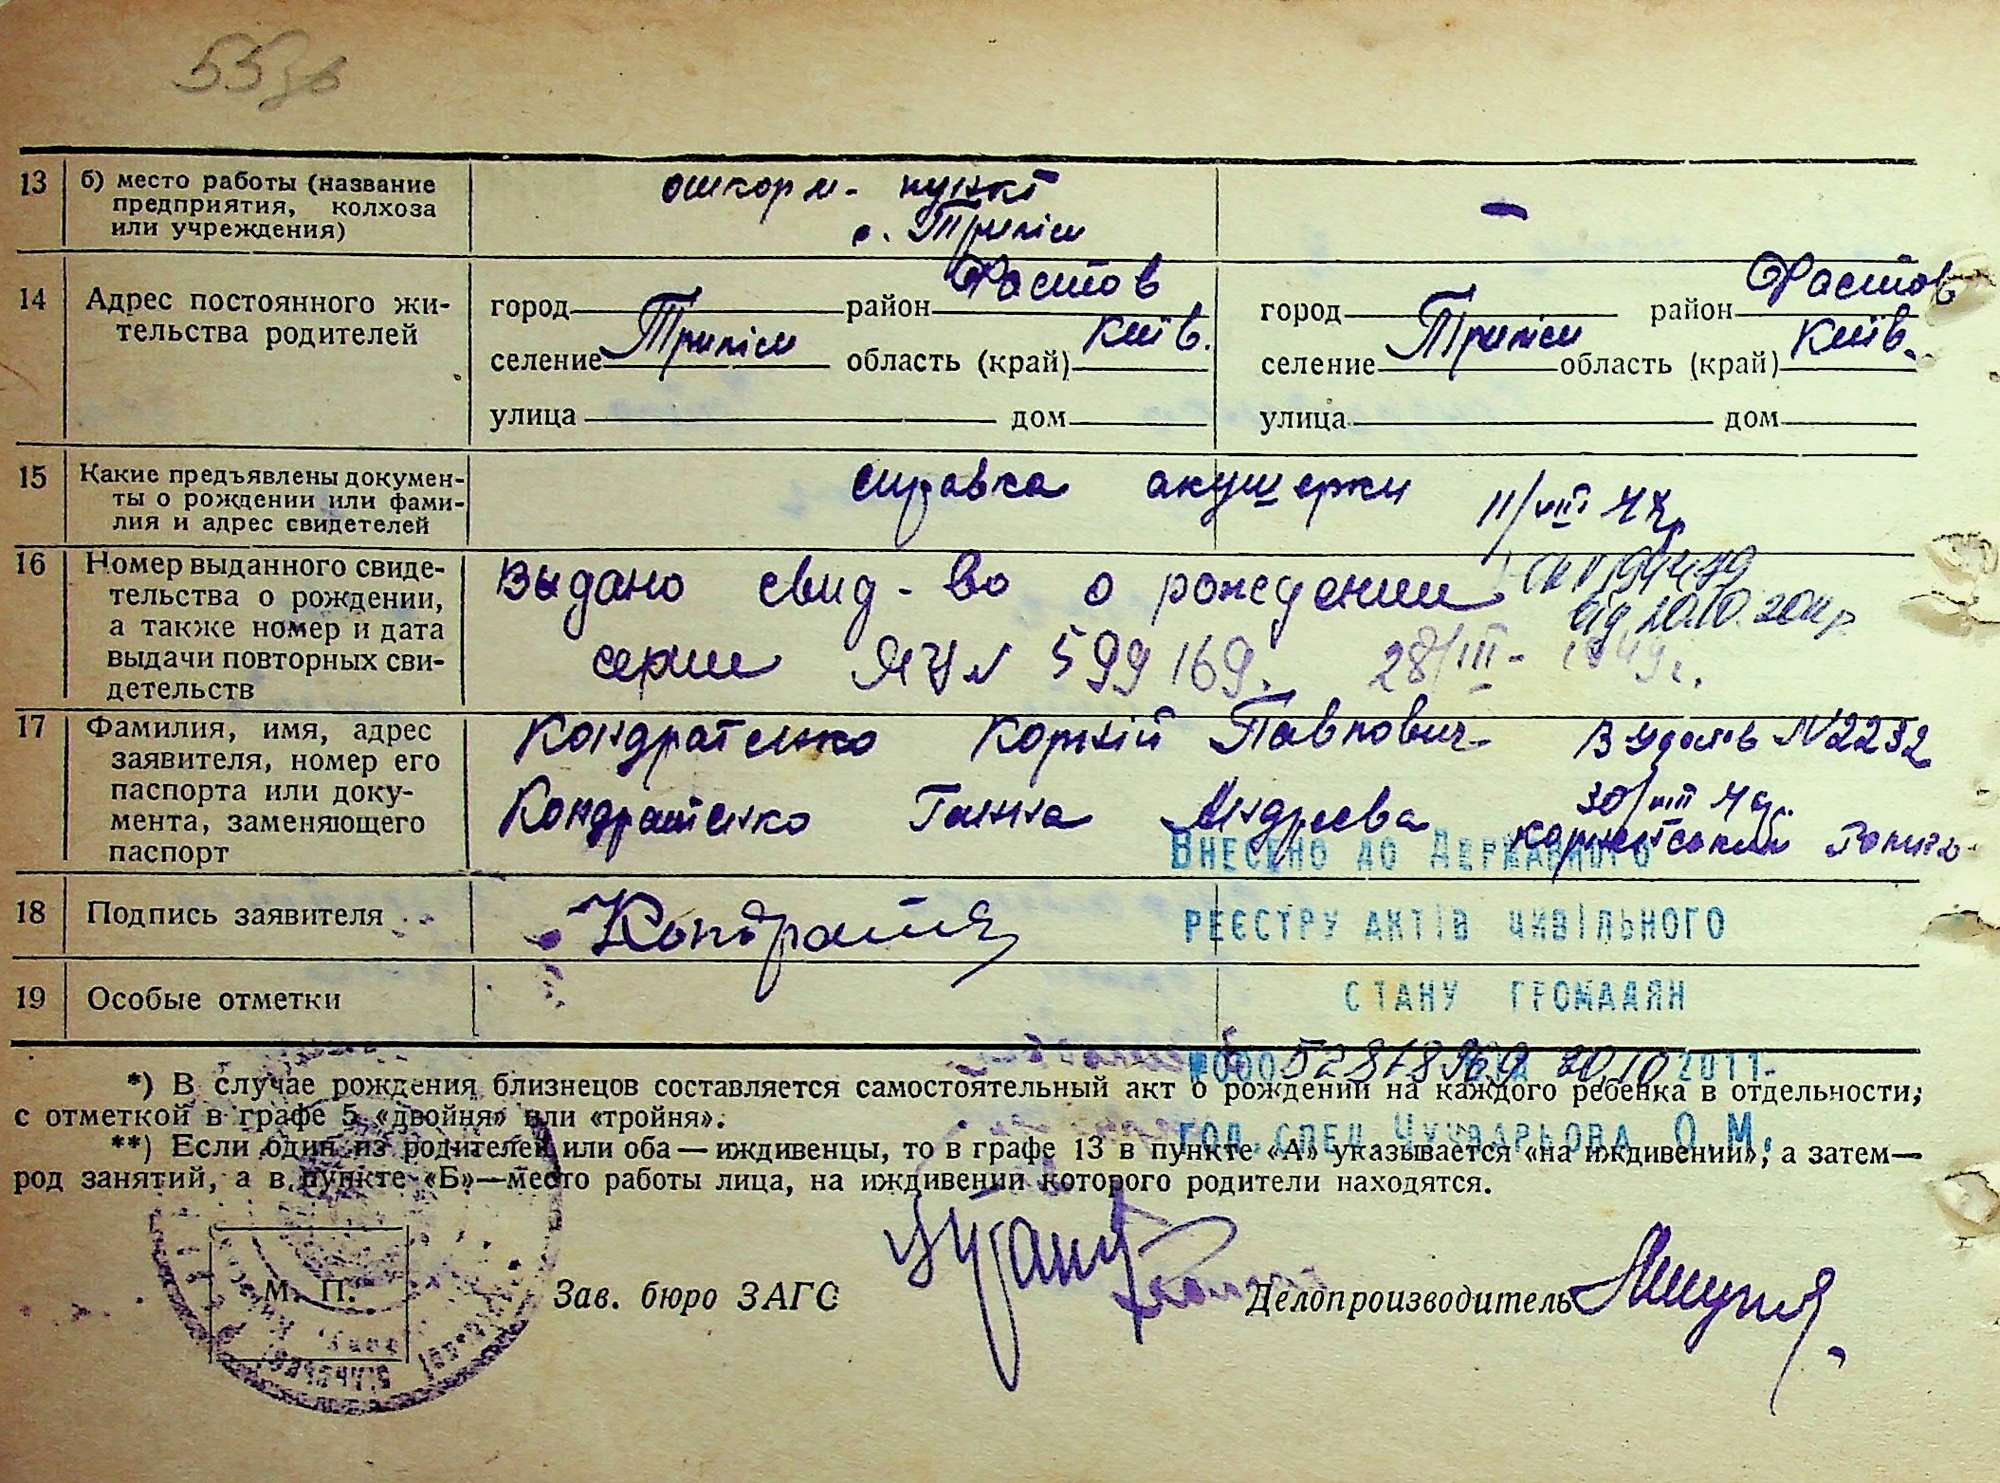 13 б) место работы (название
предприятия, колхоза
или учреждения)
пункт
с. Трипіси
—
14 Адрес постоянного жи-
тельства родителей
город район Фастов
селение Трипіси область (край) Київ.
улица дом
город район Фастов
селение Трипіси область (край) Київ.
улица дом
15 Какие предъявлены докумен-
ты о рождении или фами-
лия и адрес свидетелей
справка акушерки
16 Номер выданного свиде-
тельства о рождении,
а также номер и дата
выдачи повторных сви-
детельств
Выдано свид-во о рождении
серии ЯЦ № 599169. 28/III- 1949 г.
17 Фамилия, имя, адрес
заявителя, номер его
паспорта или доку-
мента, заменяющего
паспорт
Кондратенко Корній Павлович
№2232
Кондратенко Ганна Андреева
Внесено до Державного
18 Подпись заявителя
реєстру актів цивільного
19 Особые отметки
стану громадян
20.10 2011
*) В случае рождения близнецов составляется самостоятельный акт о рождении на каждого ребенка в отдельности,
с отметкой в графе 5 «двойня» или «тройня».
гол. спец. О.М.
**) Если один из родителей или оба — иждивенцы, то в графе 13 в пункте «А» указывается «на иждивении», а затем—
род занятий, а в пункте «Б»—место работы лица, на иждивении которого родители находятся.
М. П.
Зав. бюро ЗАГС
Делопроизводитель